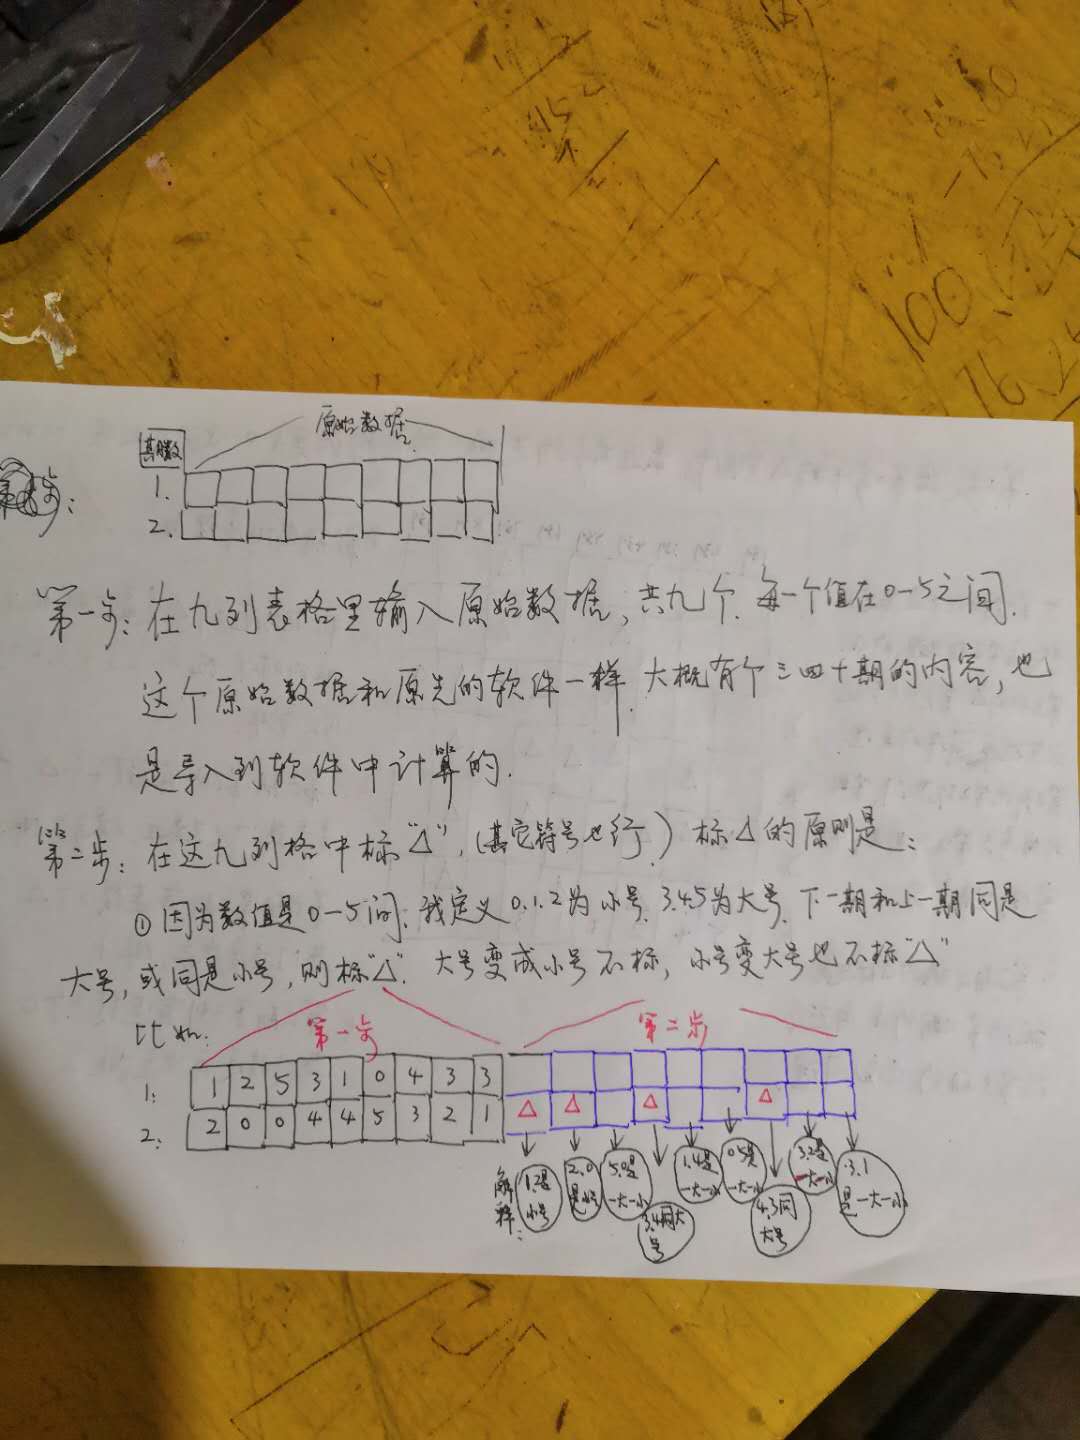 原始数据
期数
1.
步:
2.
第一步: 在九列表格里输入原始数据, 共九个. 每一个值在0-5之间.
这个原始数据和原先的软件一样. 大概有个三四十期的内容, 也
是导入到软件中计算的.
第二步: 在这九列格中标"△", (其它符号也行.) 标△的原则是:
① 因为数值是0-5间, 我定义0.1.2为小号. 3.4.5为大号. 下一期和上一期同是
大号, 或同是小号, 则标"△". 大号变成小号不标, 小号变大号也不标"△"
比如:
第一步 第二步
1: 1 2 5 3 1 0 4 3 3
2: 2 0 0 4 4 5 3 2 1 △ △ △ △
解释: 1.2是小号 2.0是小 5.0是一大一小 3.4同大号 1.4是一大一小 0.5是一大一小 4.3同大号 3.2是一大一小 3.1是一大一小
100
16.25